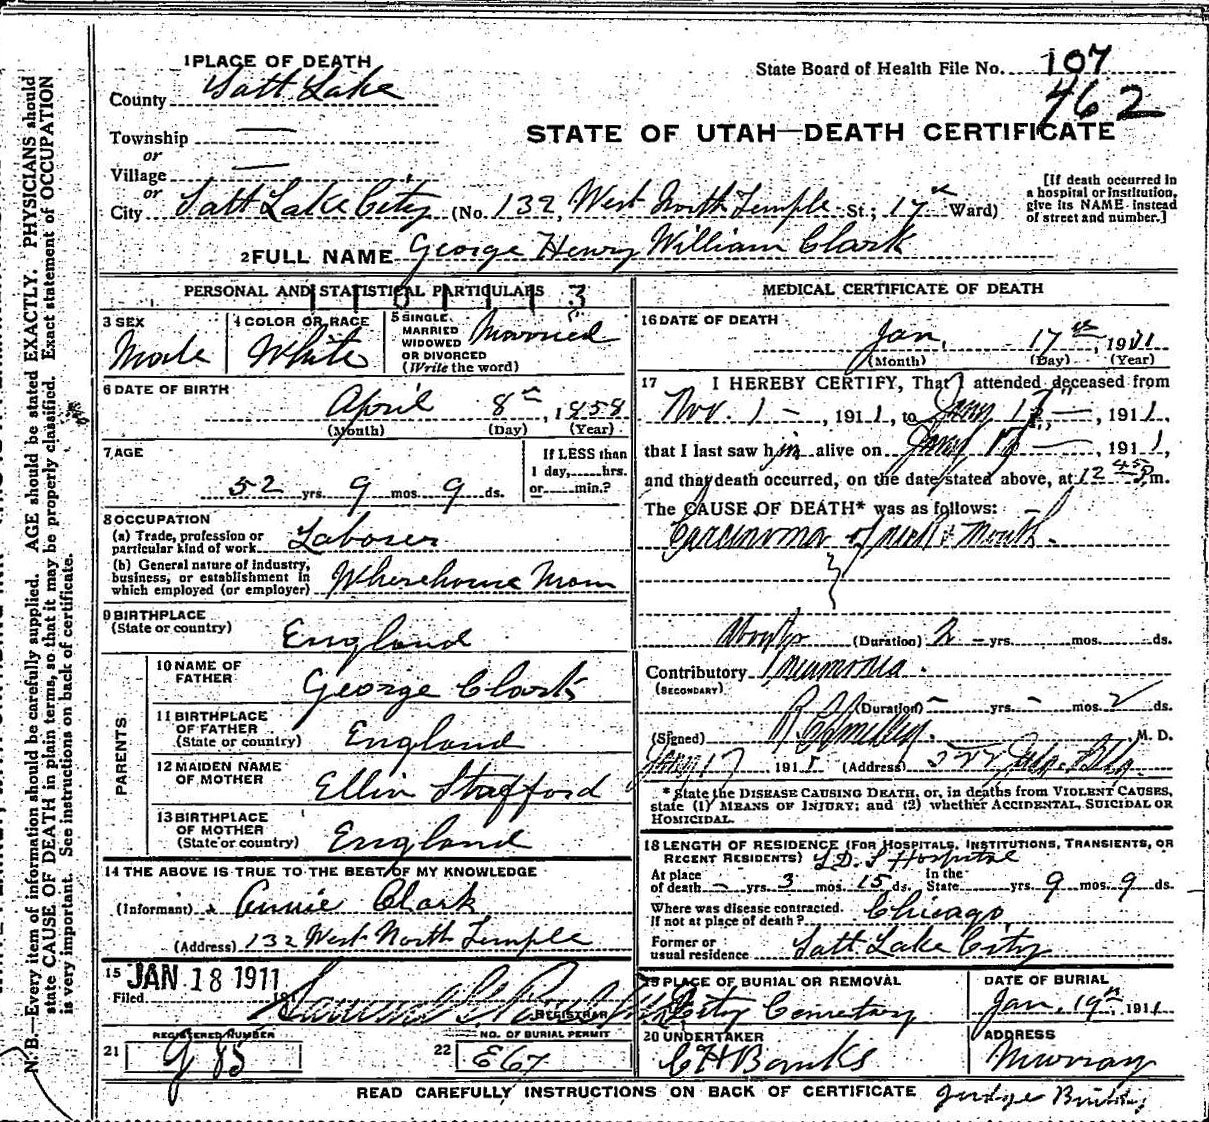 1 PLACE OF DEATH
County Salt Lake
State Board of Health File No. 107
462
Township —
or
Village —
or
STATE OF UTAH—DEATH CERTIFICATE
City Salt Lake City (No. 132, West North Temple St.; 17th Ward)
[If death occurred in a hospital or institution, give its NAME instead of street and number.]
2 FULL NAME George Henry William Clark
PERSONAL AND STATISTICAL PARTICULARS
3 SEX Male
4 COLOR OR RACE White
5 SINGLE, MARRIED WIDOWED OR DIVORCED (Write the word) Married
6 DATE OF BIRTH April 8th, 1858
(Month) (Day) (Year)
7 AGE 52 yrs. 9 mos. 9 ds.
If LESS than 1 day, hrs. or min.?
8 OCCUPATION
(a) Trade, profession or particular kind of work Laborer
(b) General nature of industry, business, or establishment in which employed (or employer) Wherehouse Man
9 BIRTHPLACE (State or country) England
PARENTS
10 NAME OF FATHER George Clark
11 BIRTHPLACE OF FATHER (State or country) England
12 MAIDEN NAME OF MOTHER Ellin Stafford
13 BIRTHPLACE OF MOTHER (State or country) England
14 THE ABOVE IS TRUE TO THE BEST OF MY KNOWLEDGE
(Informant) Annie Clark
(Address) 132 West North Temple
15 JAN 18 1911
Filed 191
REGISTRAR
REGISTERED NUMBER
21
NO. OF BURIAL PERMIT
22 E67
MEDICAL CERTIFICATE OF DEATH
16 DATE OF DEATH Jan. 17th, 1911
(Month) (Day) (Year)
17 I HEREBY CERTIFY, That I attended deceased from
Nov. 1 –, 1911, to Jany 17 —, 1911,
that I last saw him alive on Jany 17 —, 1911,
and that death occurred, on the date stated above, at 12 45 m.
The CAUSE OF DEATH* was as follows:
Carcinoma of neck & Mouth.
(Duration) 2 – yrs. mos. ds.
Contributory Pneumonia.
(SECONDARY)
(Duration) – yrs. – mos. 2 ds.
(Signed) M. D.
Jany 17 1911 (Address) 522 Judge Bldg.
* State the DISEASE CAUSING DEATH, or, in deaths from VIOLENT CAUSES, state (1) MEANS OF INJURY; and (2) whether ACCIDENTAL, SUICIDAL OR HOMICIDAL.
18 LENGTH OF RESIDENCE (FOR HOSPITALS, INSTITUTIONS, TRANSIENTS, OR RECENT RESIDENTS) L.D.S Hospital
At place of death – yrs. 3 mos. 15 ds. In the State yrs. 9 mos. 9 ds.
Where was disease contracted, if not at place of death? Chicago
Former or usual residence Salt Lake City
19 PLACE OF BURIAL OR REMOVAL City Cemetary
DATE OF BURIAL Jan. 19th, 1911
20 UNDERTAKER C H Banks
ADDRESS Murray
READ CAREFULLY INSTRUCTIONS ON BACK OF CERTIFICATE
N. B.—Every item of information should be carefully supplied. AGE should be stated EXACTLY. PHYSICIANS should
state CAUSE OF DEATH in plain terms, so that it may be properly classified. Exact statement of OCCUPATION
is very important. See instructions on back of certificate.